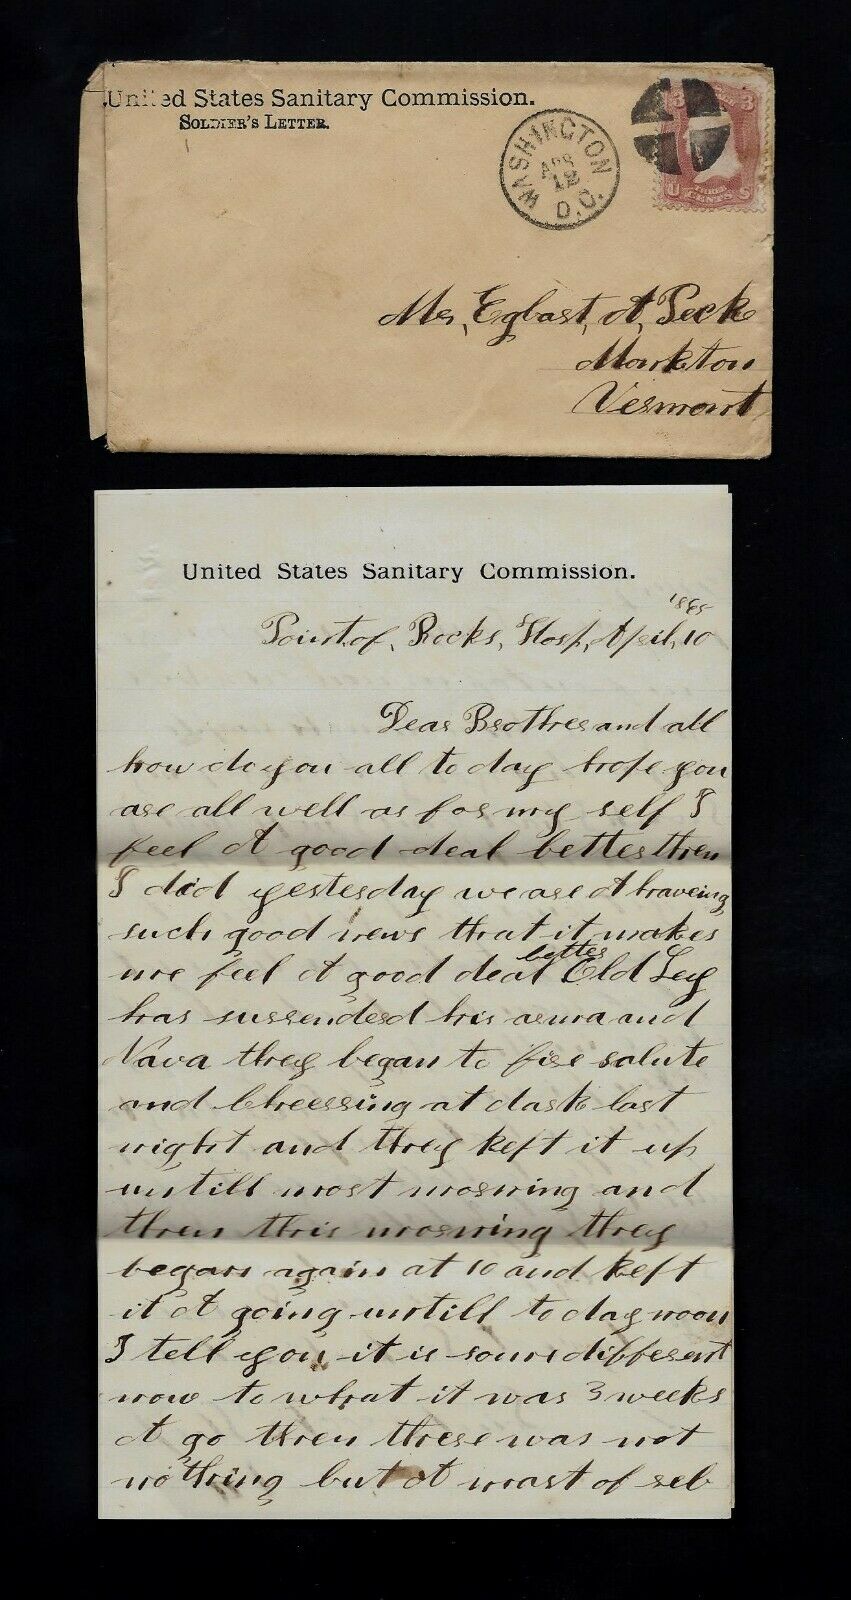 United States Sanitary Commission.
SOLDIER'S LETTER.
WASHINGTON
APR
12
D.C.
3 3
U S
THREE
CENTS
Mr, Egbart, A, Peck
Monkton
Vermont
United States Sanitary Commission.
1865
Point, of, Rocks, Hosp, April, 10
Dear Brother and all
how do you all to day hope you
are all well as for my self I
feel A good deal better then
I did yesterday we are A haveing
such good news that it makes
me feel A good deal better Old Ley
has surrenderd his arma and
Nava they began to fire salute
and Cheerring at dask last
night and they keft it up
untill most morning and
then this morning they
began again at 10 and keft
it A going untill to day noon
I tell you it is som different
now to what it was 3 weeks
A go then there was not
nothing but A mast of reb